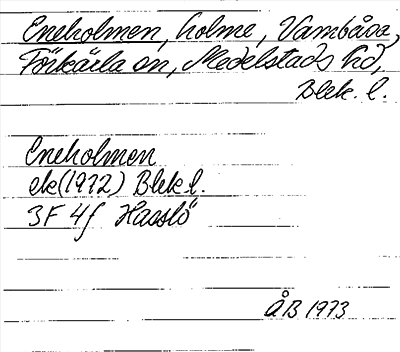 Eneholmen, holme, Vambåsa,
Förkärla sn, Medelstads hd,
Blek. l.
Eneholmen
ek(1972) Blek l.
3F 4f Hasslö
ÅB 1973